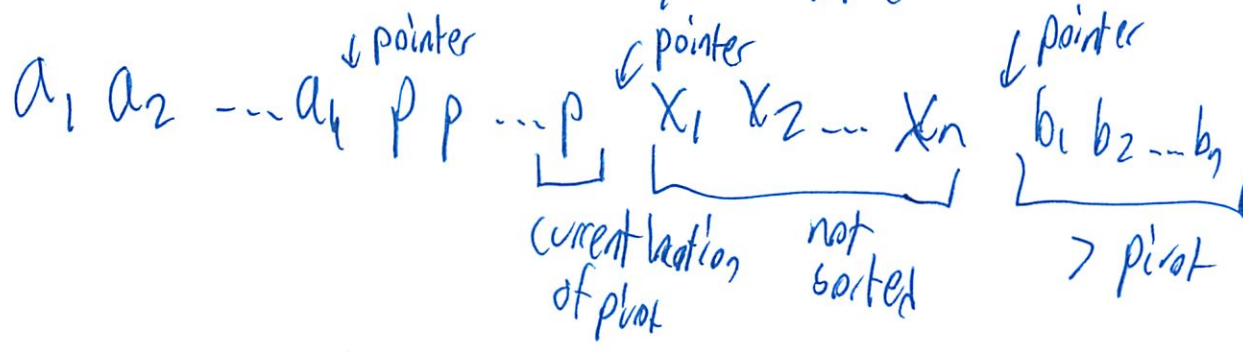 ↓ pointer ↙ pointer ↓ pointer
a₁ a₂ ---- a₄ p p ---- p x₁ x₂ ... xₙ b₁ b₂ --- bₙ
current location not > pivot
of pivot sorted